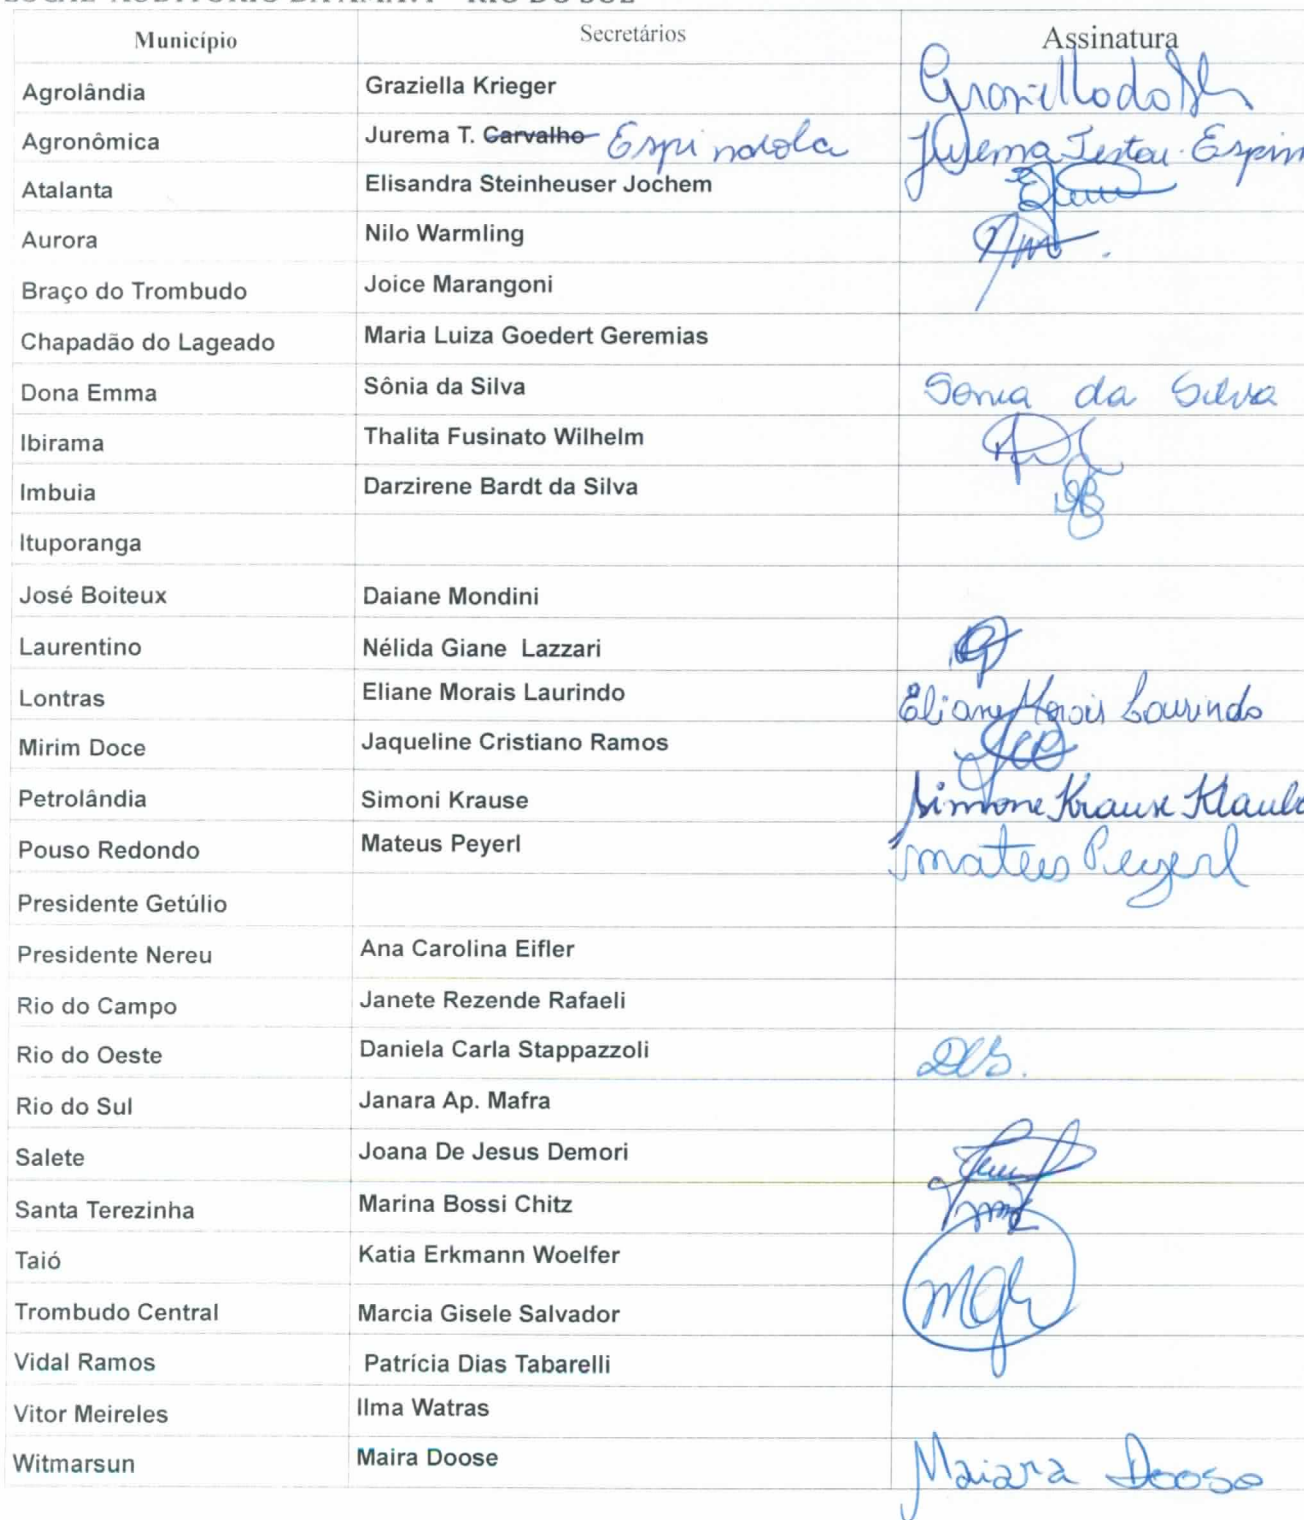 LOCAL AUDITÓRIO DA AMAVI – RIO DO SUL
Município Secretários Assinatura
Agrolândia Graziella Krieger
Agronômica Jurema T. Carvalho Espindola Jurema Testoni Espin
Atalanta Elisandra Steinheuser Jochem
Aurora Nilo Warmling
Braço do Trombudo Joice Marangoni
Chapadão do Lageado Maria Luiza Goedert Geremias
Dona Emma Sônia da Silva Sonia da Silva
Ibirama Thalita Fusinato Wilhelm
Imbuia Darzirene Bardt da Silva
Ituporanga
José Boiteux Daiane Mondini
Laurentino Nélida Giane Lazzari
Lontras Eliane Morais Laurindo Eliane Morais Laurindo
Mirim Doce Jaqueline Cristiano Ramos
Petrolândia Simoni Krause Simone Krause
Pouso Redondo Mateus Peyerl Mateus Peyerl
Presidente Getúlio
Presidente Nereu Ana Carolina Eifler
Rio do Campo Janete Rezende Rafaeli
Rio do Oeste Daniela Carla Stappazzoli DCS.
Rio do Sul Janara Ap. Mafra
Salete Joana De Jesus Demori
Santa Terezinha Marina Bossi Chitz
Taió Katia Erkmann Woelfer
Trombudo Central Marcia Gisele Salvador
Vidal Ramos Patrícia Dias Tabarelli
Vitor Meireles Ilma Watras
Witmarsun Maira Doose Maiara Doose